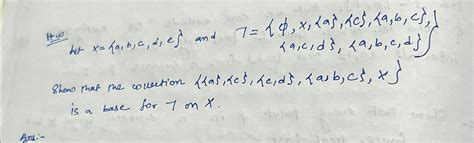 H.W
Let X = {a, b, c, d, e} and T = {ϕ, X, {a}, {c}, {a, b, c},
{a, c, d}, {a, b, c, d}}
Show that the collection {{a}, {c}, {c, d}, {a, b, c}, X}
is a base for T on X.
Ans:-